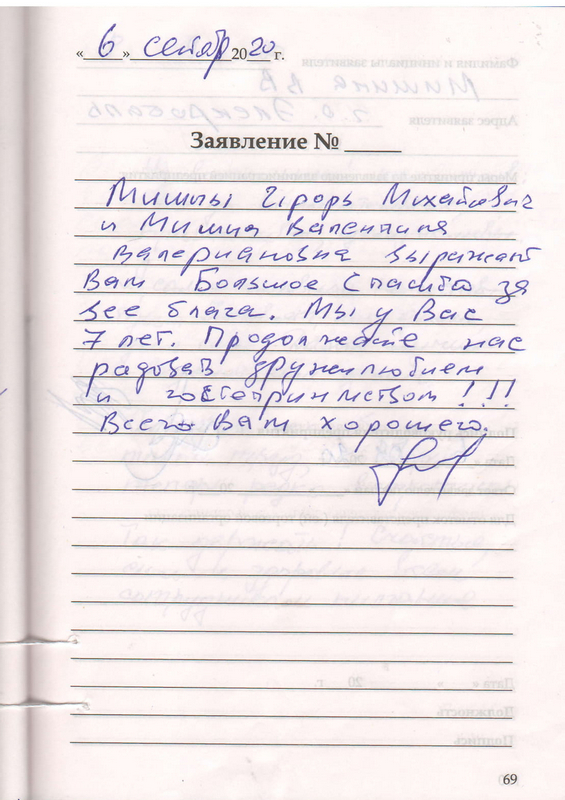 « 6 » сентяр 2020 г.
Заявление №
Мишины Игорь Михайлович
и Мишина Валентина
Валериановна выражают
Вам Большое Спасибо за
все блага. Мы у Вас
7 лет. Продолжайте нас
радовать дружелюбием
и гостеприимством!!!
Всего Вам хорошего.
69